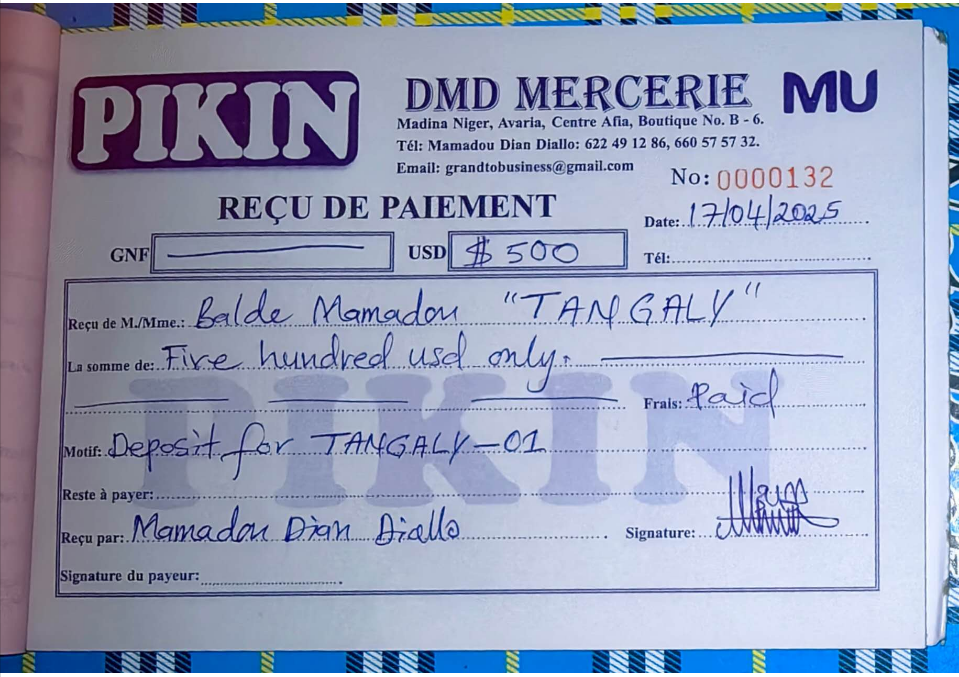 PIKIN
DMD MERCERIE
MU
Madina Niger, Avaria, Centre Afia, Boutique No. B - 6.
Tél: Mamadou Dian Diallo: 622 49 12 86, 660 57 57 32.
Email: grandtobusiness@gmail.com
No: 0000132
REÇU DE PAIEMENT
Date: 17/04/2025
GNF
USD $ 500
Tél:
Reçu de M./Mme.: Balde Mamadou "TANGALY"
La somme de: Five hundred usd only.
Frais: Paid
PIKIN
Motif: Deposit for TANGALY-01
Reste à payer:
Reçu par: Mamadou Dian Diallo
Signature:
Signature du payeur: